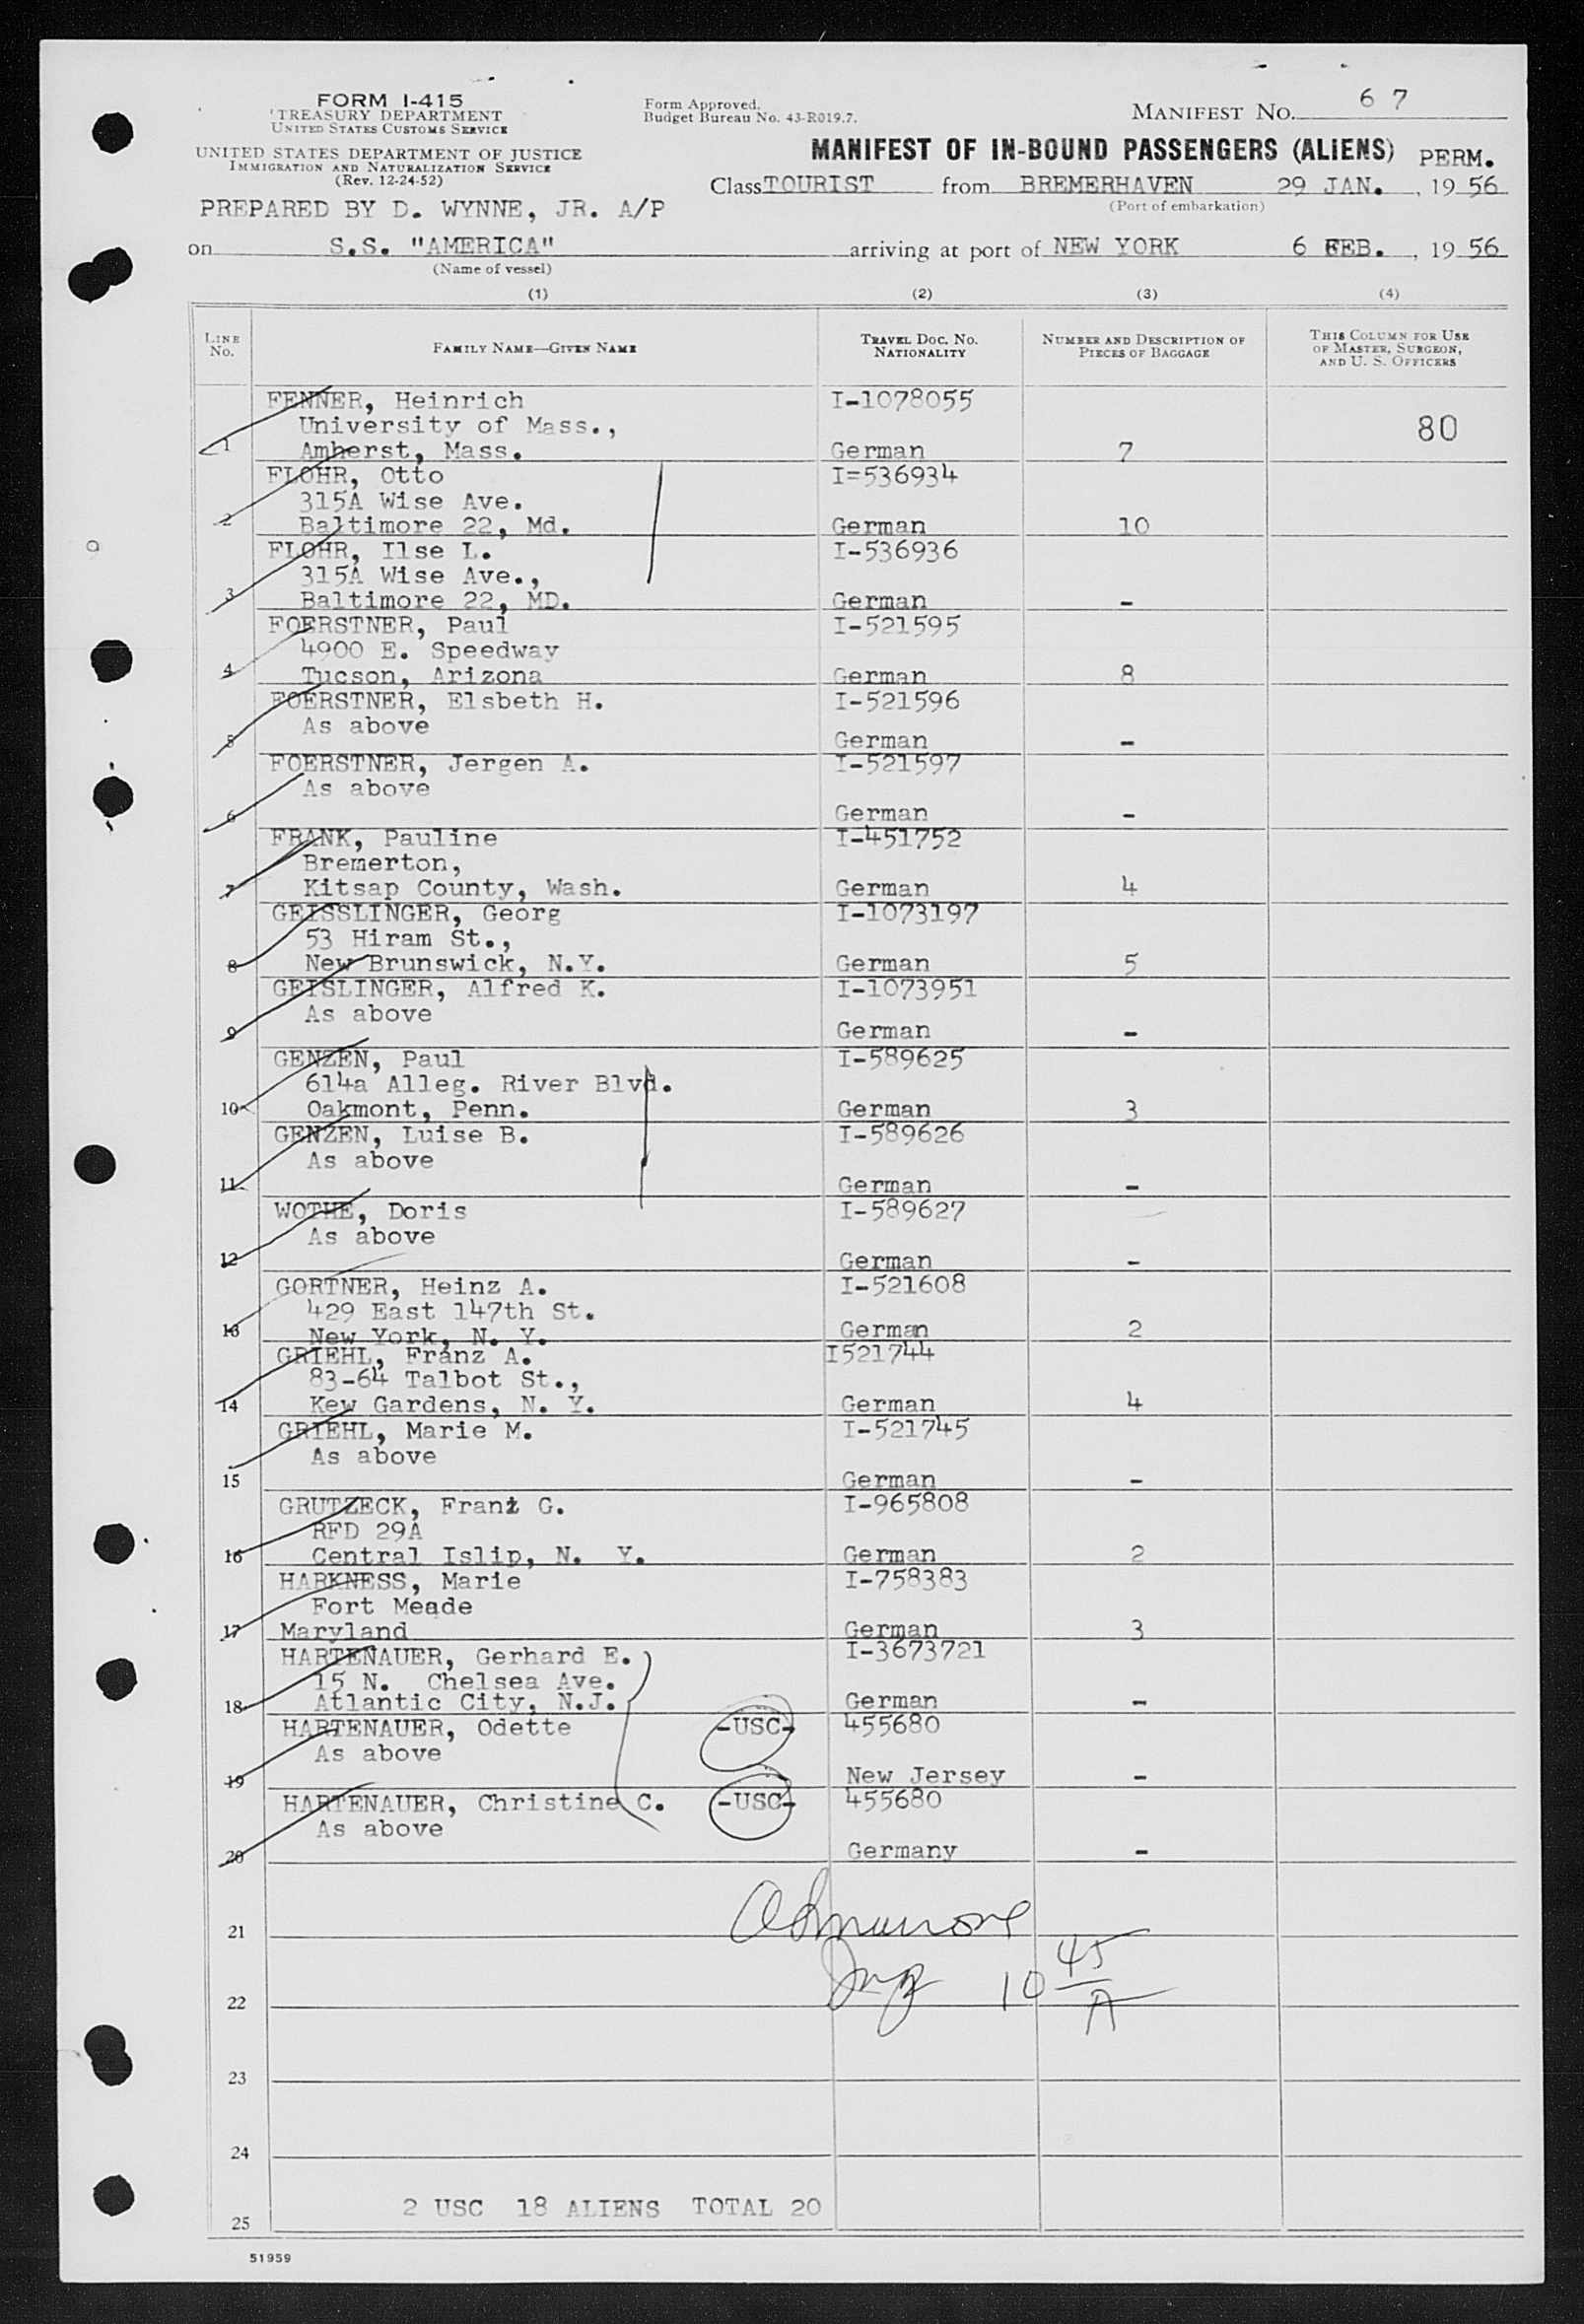 FORM I-415
TREASURY DEPARTMENT
UNITED STATES CUSTOMS SERVICE
UNITED STATES DEPARTMENT OF JUSTICE
IMMIGRATION AND NATURALIZATION SERVICE
(Rev. 12-24-52)
Form Approved.
Budget Bureau No. 43-R019.7.
MANIFEST NO. 6 7
MANIFEST OF IN-BOUND PASSENGERS (ALIENS) PERM.
Class TOURIST from BREMERHAVEN 29 JAN., 19 56
(Port of embarkation)
PREPARED BY D. WYNNE, JR. A/P
on S.S. "AMERICA" arriving at port of NEW YORK 6 FEB., 19 56
(Name of vessel)
(1) (2) (3) (4)
LINE No. FAMILY NAME—GIVEN NAME TRAVEL DOC. NO. NATIONALITY NUMBER AND DESCRIPTION OF PIECES OF BAGGAGE THIS COLUMN FOR USE OF MASTER, SURGEON, AND U. S. OFFICERS
FENNER, Heinrich I-1078055
University of Mass., 80
1 Amherst, Mass. German 7
FLOHR, Otto I=536934
315A Wise Ave.
2 Baltimore 22, Md. German 10
FLOHR, Ilse L. I-536936
315A Wise Ave.,
3 Baltimore 22, MD. German -
FOERSTNER, Paul I-521595
4900 E. Speedway
4 Tucson, Arizona German 8
FOERSTNER, Elsbeth H. I-521596
As above
5 German -
FOERSTNER, Jergen A. I-521597
As above
6 German -
FRANK, Pauline I-451752
Bremerton,
7 Kitsap County, Wash. German 4
GEISSLINGER, Georg I-1073197
53 Hiram St.,
8 New Brunswick, N.Y. German 5
GEISLINGER, Alfred K. I-1073951
As above
9 German -
GENZEN, Paul I-589625
614a Alleg. River Blvd.
10 Oakmont, Penn. German 3
GENZEN, Luise B. I-589626
As above
11 German -
WOTHE, Doris I-589627
As above
12 German -
GORTNER, Heinz A. I-521608
429 East 147th St.
13 New York, N. Y. German 2
GRIEHL, Franz A. I521744
83-64 Talbot St.,
14 Kew Gardens, N. Y. German 4
GRIEHL, Marie M. I-521745
As above
15 German -
GRUTZECK, Franz G. I-965808
RFD 29A
16 Central Islip, N. Y. German 2
HARKNESS, Marie I-758383
Fort Meade
17 Maryland German 3
HARTENAUER, Gerhard E. I-3673721
15 N. Chelsea Ave.
18 Atlantic City, N.J. German -
HARTENAUER, Odette -USC- 455680
As above
19 New Jersey -
HARTENAUER, Christine C. -USC- 455680
As above
20 Germany -
21
10 45/A
22
23
24
2 USC 18 ALIENS TOTAL 20
25
51959